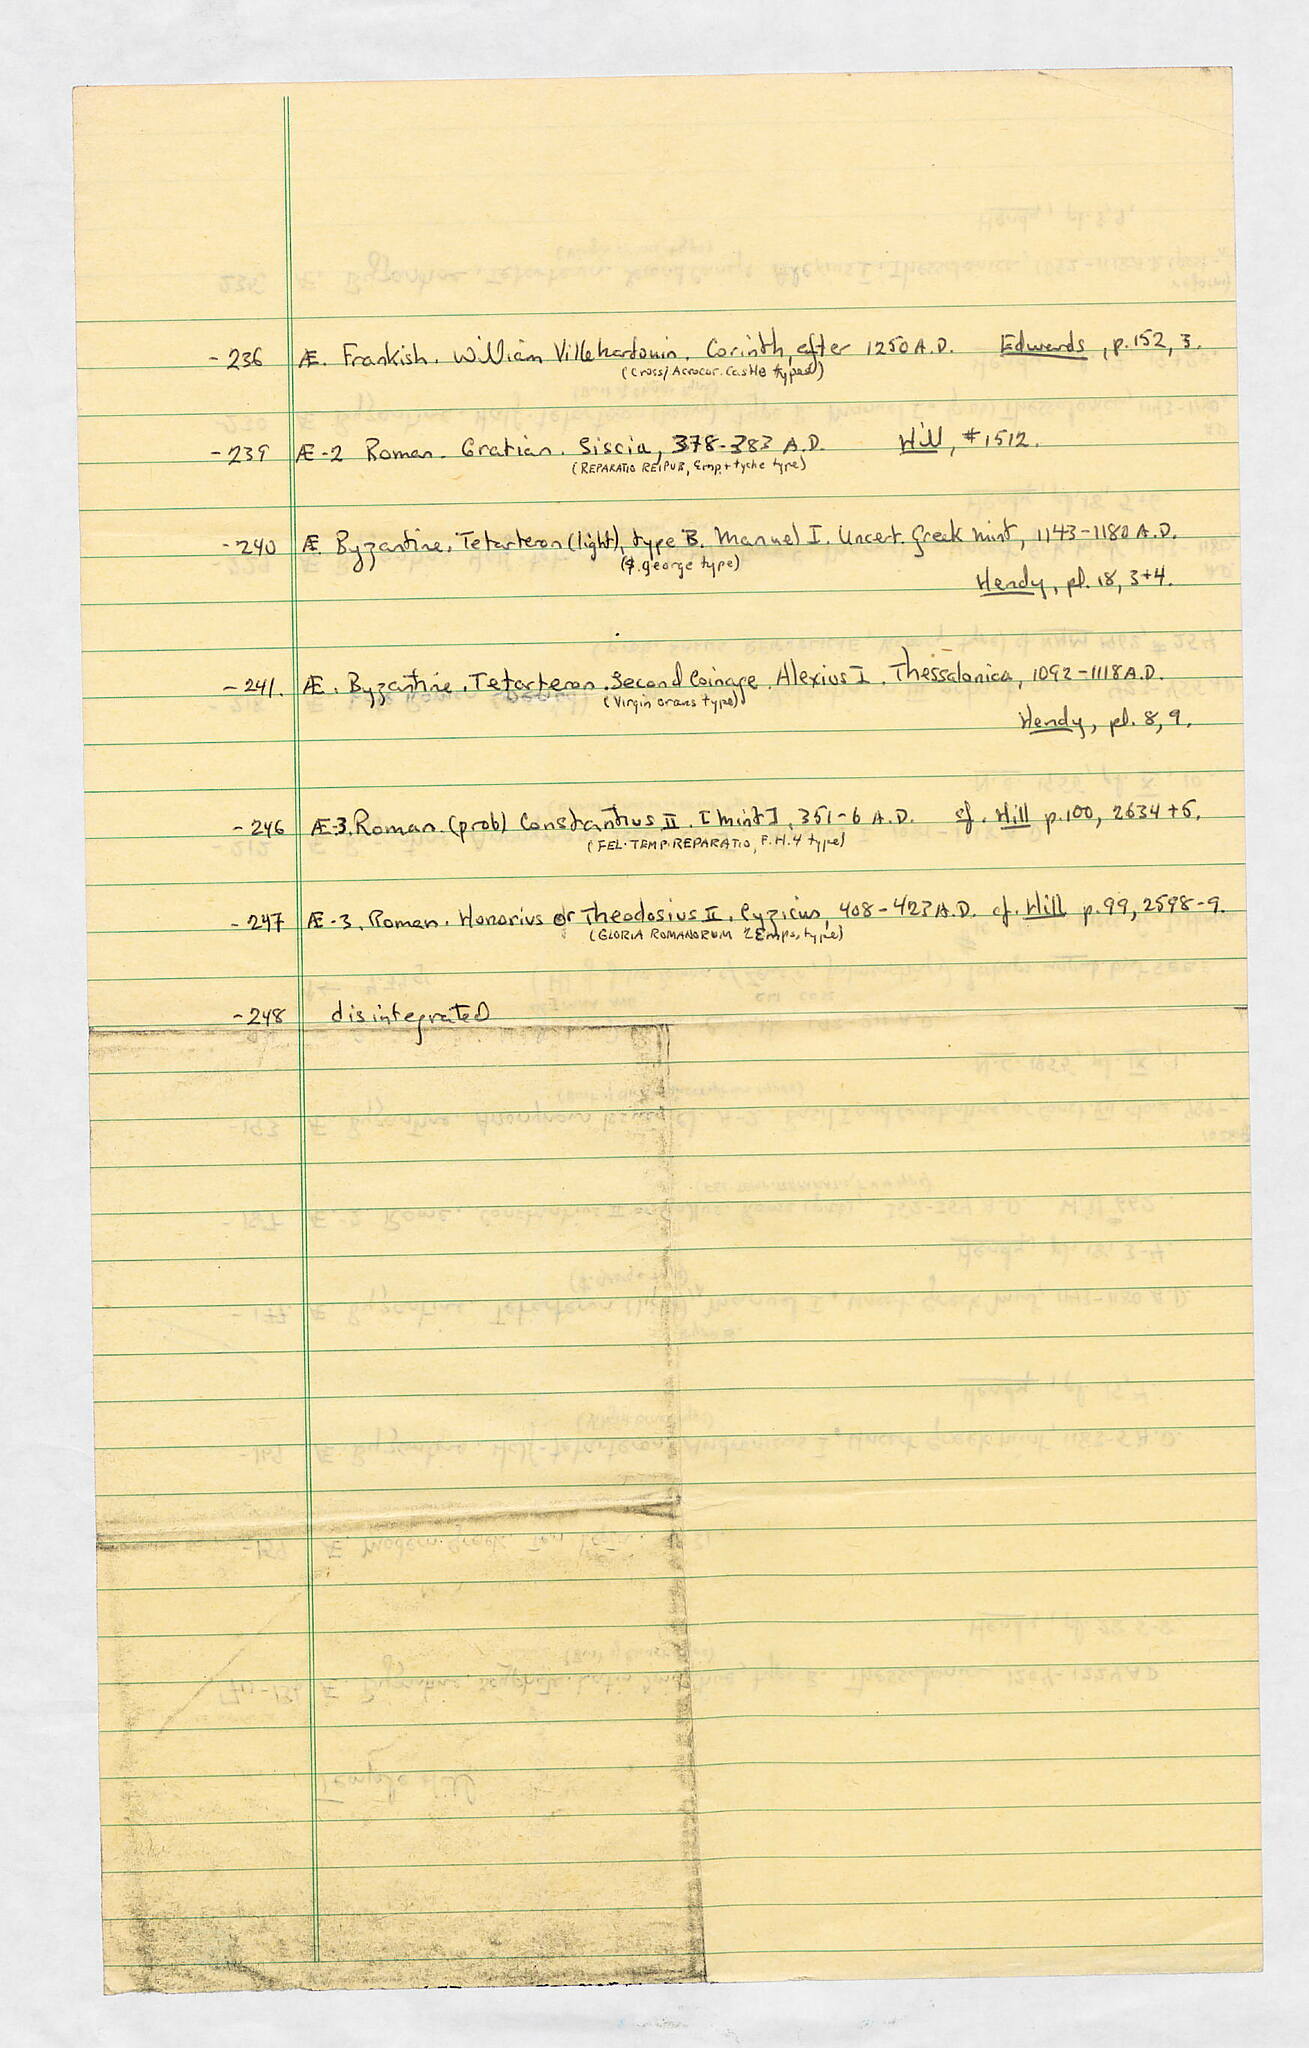 -236 Æ. Frankish. William Villehardouin. Corinth, after 1250 A.D. Edwards, p. 152, 3.
(Cross/Acrocor. Castle types)
-239 Æ-2 Roman. Gratian. Siscia, 378-383 A.D. Hill, #1512.
(REPARATIO REIPUB, Emp. + tyche type)
-240 Æ. Byzantine. Tetarteron (light), type B. Manuel I. Uncert. Greek mint, 1143-1180 A.D.
(St. George type)
Hendy, pl. 18, 3+4.
-241. Æ. Byzantine. Tetarteron. Second Coinage. Alexius I. Thessalonica, 1092-1118 A.D.
(Virgin orans type)
Hendy, pl. 8, 9.
-246 Æ-3. Roman. (prob) Constantius II. [mint], 351-6 A.D. cf. Hill p. 100, 2634+5.
(FEL·TEMP·REPARATIO, F.H. 4 type)
-247 Æ-3. Roman. Honorius or Theodosius II. Cyzicus, 408-423 A.D. cf. Hill p. 99, 2598-9.
(GLORIA ROMANORUM 2 Emps. type)
-248 disintegrated